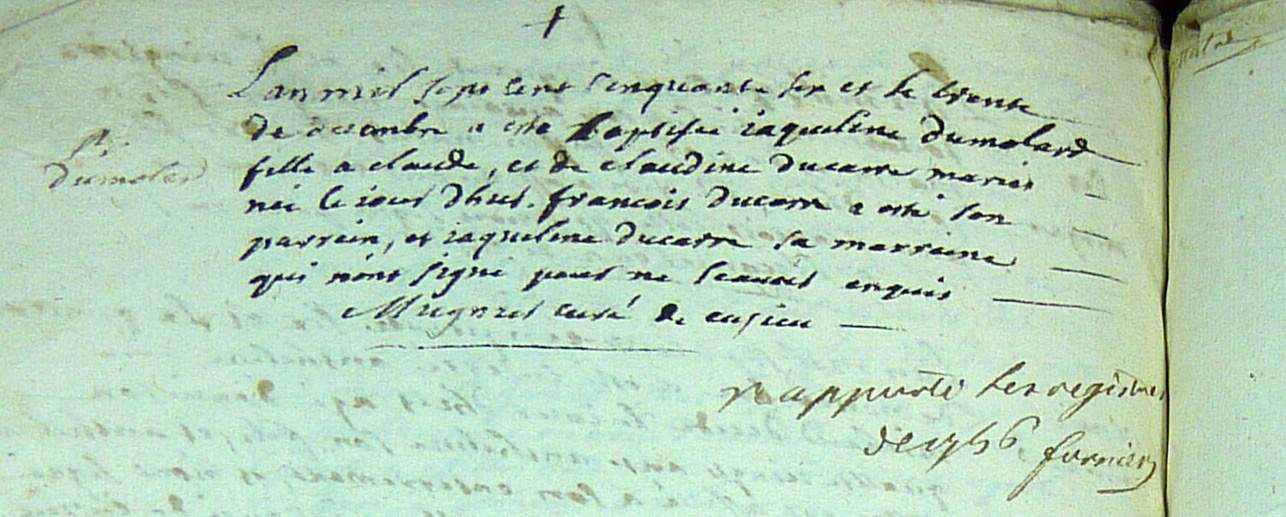 Lan mil sept cent cinquante six et le trente
de decembre a esté baptisée iaqueline dumolard
fille a claude, et de claudine ducarre mariés
née le iour dhui. francois ducarre a esté son
parrein, et iaqueline ducarre sa marreine
qui n'ont signé pour ne scavoir enquis
Mugniet curé de cusieu
Bt.
dumolard
rapporté les registres
de 1756 furnier